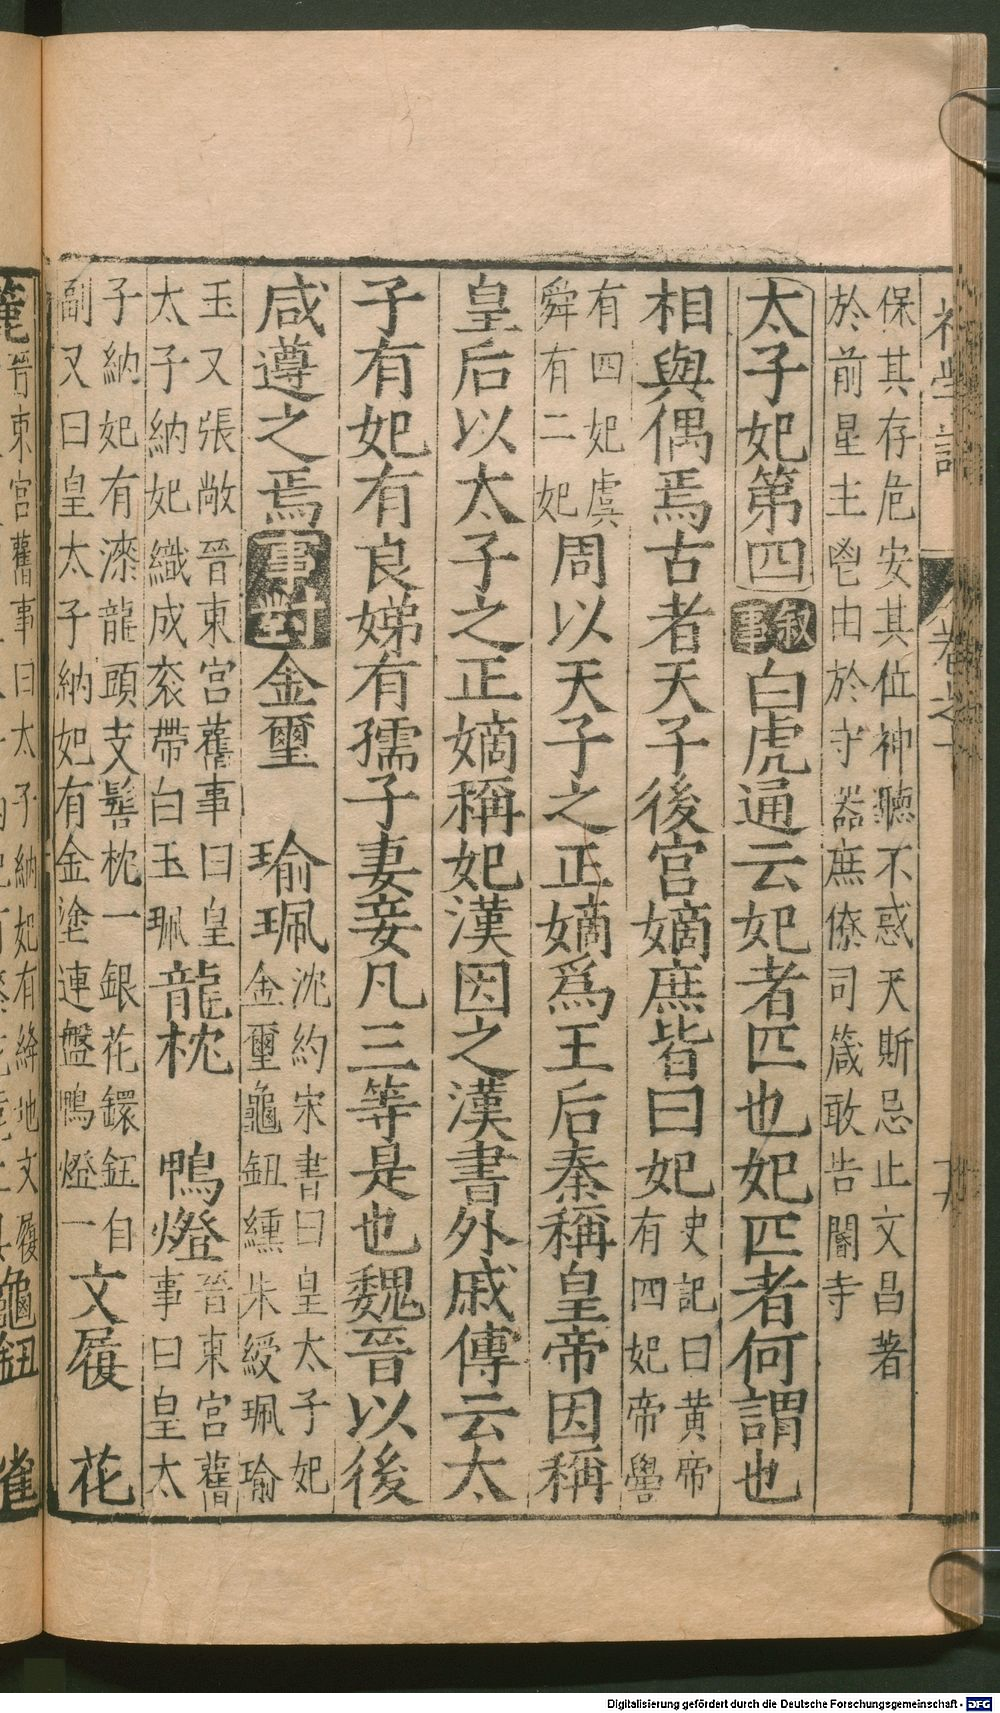 保其存危安其位神聽不惑天斯忌止文昌著
於前星主鬯由於守器庶僚司箴敢告閽寺
太子妃第四 叙事 白虎通云妃者匹也妃匹者何謂也
相與偶焉古者天子後宮嫡庶皆曰妃 史記曰黄帝
有四妃帝嚳
有四妃虞
舜有二妃 周以天子之正嫡爲王后秦稱皇帝因稱
皇后以太子之正嫡稱妃漢因之漢書外戚傳云太
子有妃有良娣有孺子妻妾凡三等是也魏晉以後
咸遵之焉 事對 金璽 瑜珮 沈約宋書曰皇太子妃
金璽龜鈕纁朱綬珮瑜
玉又張敞晉東宮舊事曰皇
太子納妃織成衮帶白玉珮 龍枕 鴨燈 晉東宮舊
事曰皇太
子納妃有漆龍頭支髻枕一銀花鐶鈕自
副又曰皇太子納妃有金塗連盤鴨燈一 文履 花
晉東宮舊事曰太子納妃有絳地文履
龜鈕 雀
Digitalisierung gefördert durch die Deutsche Forschungsgemeinschaft - DFG